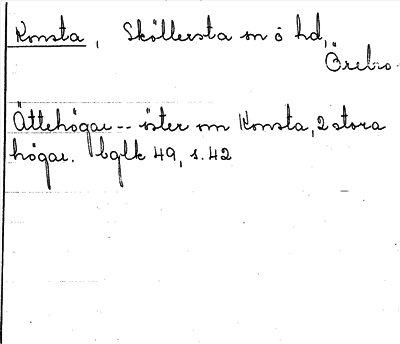 Konsta, Sköllersta sn o hd,
Örebro.
Ättehögar -- öster om Konsta, 2 stora
högar. bglk 49, s. 42